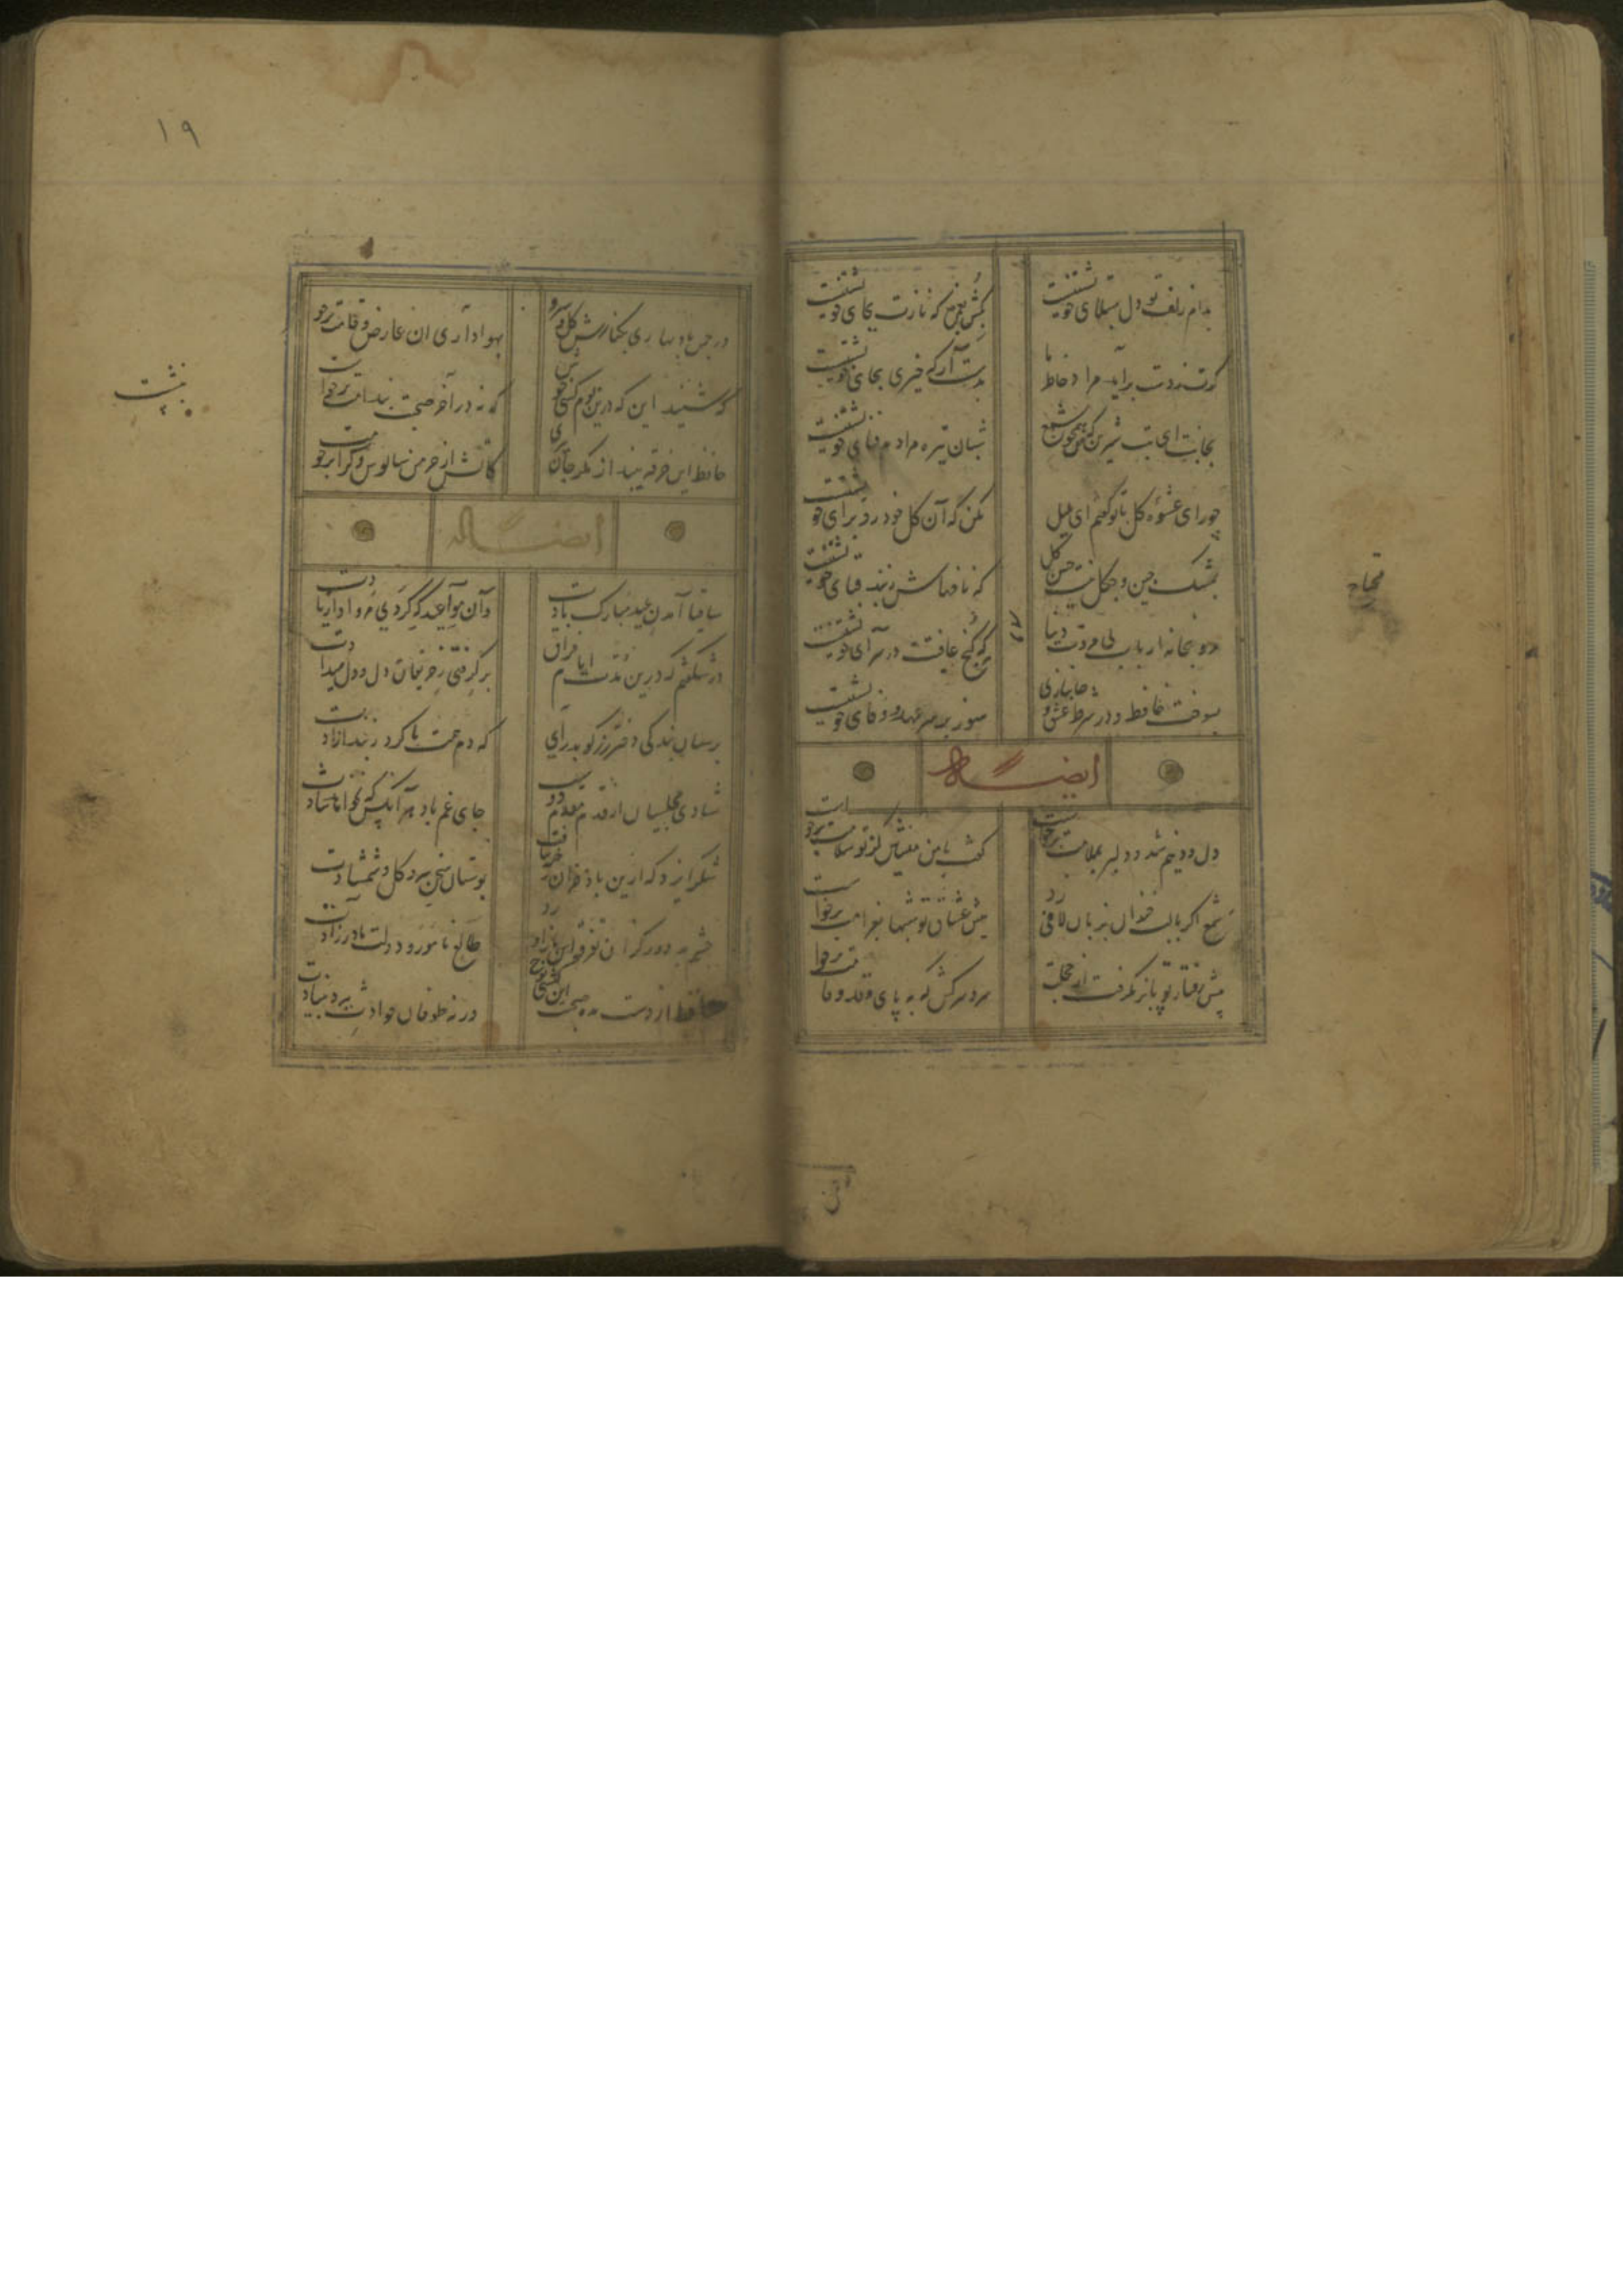 بدام زلف تو دل مبتلای خویشتنست
بکش بغمزه که اینش سزای خویشتنست
گرت ز دست برآید مراد خاطر ما
بدست آر که خیری بجای خویشتنست
بجانت ای بت شیرین که همچون شمع
شبان تیره مرادم فنای خویشتنست
چو رای عشق گل با تو گفتم ای بلبل
مکن که آن گل خودرو برای خویشتنست
بمشک چین و چگل نیست حسن گل
که نافهاش ز بند قبای خویشتنست
مرو بخانه ارباب بی مروت دنیا
که گنج عافیت در سرای خویشتنست
بسوخت حافظ و در شرط عشق و جانبازی
هنوز بر سر عهد و وفای خویشتنست
ایضاً له
دل و دینم شد و دلبر بملامت برخاست
گفت با من منشین کز تو سلامت برخاست
شمع اگر بالب خندان بزبان لافی زد
پیش عشاق تو شبها بغرامت برخاست
پیش رفتار تو پا بر نگرفت از خجلت
سرو سرکش که به پای قد و قامت برخاست
۱۹
در چمن باد بهاری بکنار گل و سرو
بهواداری آن عارض و قامت برخاست
که نه در آخر صحبت بندامت برخاست
حافظ این خرقه بینداز مگر جان ببری
کاتش از خرمن سالوس و کرامت برخاست
ایضاً له
ساقیا آمدن عید مبارک بادت
وان مواعید که کردی مرواد از یادت
در شگفتم که درین مدت ایام فراق
برگرفتی ز حریفان دل و دل میدادت
برسان بندگی دختر رز گو بدرآی
که دم همت ما کرد ز بند آزادت
شادی مجلسیان از قدم مقدم تست
جای غم باد هر آن کس که نخواهد شادت
شکر ایزد که ازین باد خزان رخنه نیافت
بوستان سمن و سرو و گل و شمشادت
چشم بد دور کزان تفرقه خوش باز آورد
طالع نامور و دولت مادرزادت
حافظ از دست مده صحبت این کشتی نوح
ورنه طوفان حوادث ببرد بنیادت